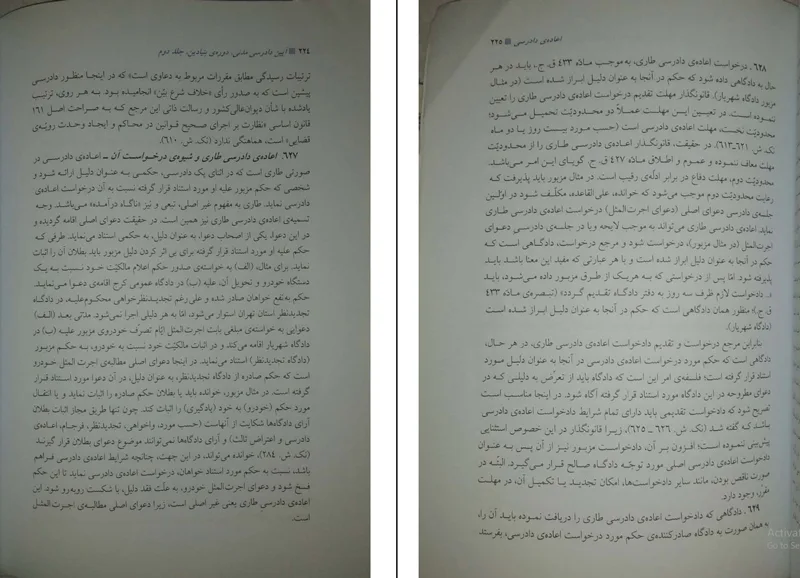 ۲۲۴ ■ آیین دادرسی مدنی، دوره‌ی بنیادین، جلد دوم
ترتیبات رسیدگی مطابق مقررات مربوط به دعاوی است» که در اینجا منظور دادرسی
پیشین است که به صدور رأی «خلاف شرع بیّن» انجامیده بود. به هر روی، ترتیب
یادشده با شأن دیوان‌عالی‌کشور و رسالت ذاتی این مرجع که به صراحت اصل ۱۶۱
قانون اساسی «نظارت بر اجرای صحیح قوانین در محاکم و ایجاد وحدت رویّه‌ی
قضایی» است، هماهنگی ندارد (نک. ش. ۶۱۰).
۶۲۷. اعاده‌ی دادرسی طاری و شیوه‌ی درخواست آن ـ اعاده‌ی دادرسی در
صورتی طاری است که در اثنای یک دادرسی، حکمی به عنوان دلیل ارائه شود و
شخصی که حکم مزبور علیه او مورد استناد قرار گرفته نسبت به آن درخواست اعاده‌ی
دادرسی نماید. طاری به مفهوم غیر اصلی، تبعی و نیز «ناگاه درآمده» می‌باشد. وجه
تسمیه‌ی اعاده‌ی دادرسی طاری نیز همین است. در حقیقت دعوای اصلی اقامه گردیده و
در این دعوا، یکی از اصحاب دعوا، به عنوان دلیل، به حکمی استناد می‌نماید. طرفی که
حکم علیه او مورد استناد قرار گرفته برای بی اثر کردن دلیل مزبور باید بطلان آن را اثبات
نماید. برای مثال، (الف) به خواسته‌ی صدور حکم اعلام مالکیّت خود نسبت به یک
دستگاه خودرو و تحویل آن، علیه (ب) در دادگاه عمومی کرج اقامه‌ی دعوا می‌نماید.
حکم به‌نفع خواهان صادر شده و علی رغم تجدیدنظرخواهی محکوم‌علیه، در دادگاه
تجدیدنظر استان تهران استوار می‌شود. امّا به هر دلیلی اجرا نمی‌شود. مدتی بعد (الف)
دعوایی به خواسته‌ی مبلغی بابت اجرت‌المثل ایّام تصرّف خودروی مزبور علیه (ب) در
دادگاه شهریار اقامه می‌کند و در اثبات مالکیّت خود نسبت به خودرو، به حکم مزبور
(دادگاه تجدیدنظر) استناد می‌نماید. در اینجا دعوای اصلی مطالبه‌ی اجرت المثل خودرو
است که حکم صادره از دادگاه تجدیدنظر، به عنوان دلیل، در آن دعوا مورد استناد قرار
گرفته است. در مثال مزبور، خوانده باید یا بطلان حکم صادره را اثبات نماید و یا انتقال
مورد حکم (خودرو) به خود (یادگیری) را اثبات کند. چون تنها طریق مجاز اثبات بطلان
آرای دادگاه‌ها شکایت از آنهاست (حسب مورد، واخواهی، تجدیدنظر، فرجام، اعاده‌ی
دادرسی و اعتراض ثالث) و آرای دادگاه‌ها نمی‌توانند موضوع دعوای بطلان قرار گیرند
(نک. ش. ۲۸۴)، خوانده می‌تواند، در این جهت، چنانچه شرایط اعاده‌ی دادرسی فراهم
باشد، نسبت به حکم مورد استناد خواهان، درخواست اعاده‌ی دادرسی نماید تا این حکم
فسخ شود و دعوای اجرت‌المثل خودرو، به علّت فقد دلیل، با شکست روبه‌رو شود. این
اعاده‌ی دادرسی طاری یعنی غیر اصلی است، زیرا دعوای اصلی مطالبه‌ی اجرت‌المثل
است.
اعاده‌ی دادرسی ■ ۲۲۵
۶۲۸. درخواست اعاده‌ی دادرسی طاری، به موجب مادّه ۴۳۳ ق. ج.، باید در هر
حال به دادگاهی داده شود که حکم در آنجا به عنوان دلیل ابراز شده است (در مثال
مزبور دادگاه شهریار). قانونگذار مهلت تقدیم درخواست اعاده‌ی دادرسی طاری را تعیین
ننموده است. در تعیین این مهلت عملاً دو محدودیّت تحمیل می‌شود؛
محدودیّت نخست، مهلت اعاده‌ی دادرسی است (حسب مورد بیست روز یا دو ماه
نک. ش. ۶۲۱-۶۱۳). در حقیقت، قانونگذار اعاده‌ی دادرسی طاری را از محدودیّت
مهلت معاف ننموده و عموم و اطلاق مادّه ۴۲۷ ق. ج. گویای این امر می‌باشد.
محدودیّت دوم، مهلت دفاع در برابر ادلّه‌ی رقیب است. در مثال مزبور باید پذیرفت که
رعایت محدودیّت دوم موجب می‌شود که خوانده، علی‌القاعده، مکلّف شود در اولین
جلسه‌ی دادرسی دعوای اصلی (دعوای اجرت‌المثل) درخواست اعاده‌ی دادرسی طاری
نماید. اعاده‌ی دادرسی طاری می‌تواند به موجب لایحه ویا در جلسه‌ی دادرسی دعوای
اجرت‌المثل (در مثال مزبور)، درخواست شود و مرجع درخواست، دادگاهی است که
حکم در آنجا به عنوان دلیل ابراز شده است و با هر عبارتی که مفید این معنا باشد. باید
پذیرفته شود. امّا پس از درخواستی که به هریک از طرق مزبور داده می‌شود، باید
«. دادخواست لازم ظرف سه روز به دفتر دادگاه تقدیم گردد» (تبصره‌ی مادّه ۴۳۳
ق. ج.)؛ منظور همان دادگاهی است که حکم در آنجا به عنوان دلیل ابراز شده است
(دادگاه شهریار).
بنابراین مرجع درخواست و تقدیم دادخواست اعاده‌ی دادرسی طاری، در هر حال،
دادگاهی است که حکم مورد درخواست اعاده‌ی دادرسی در آنجا به عنوان دلیل مورد
استناد قرار گرفته است؛ فلسفه‌ی امر این است که دادگاه باید از تعرّض به دلیلی که در
دعوای مطروحه در این دادگاه مورد استناد قرار گرفته آگاه شود. در اینجا مناسب است
تصریح شود که دادخواست تقدیمی باید دارای تمام شرایط دادخواست اعاده‌ی دادرسی
باشد که گفته شد (نک. ش. ۶۲۶ ـ ۶۲۵)، زیرا قانونگذار در این خصوص استثنایی
پیش‌بینی ننموده است؛ افزون بر آن، دادخواست مزبور نیز از آن پس به عنوان
دادخواست اعاده‌ی دادرسی اصلی مورد توجّه دادگاه صالح قرار می‌گیرد. البتّه در
صورت ناقص بودن، مانند سایر دادخواست‌ها، امکان تجدید یا تکمیل آن، در مهلت
مقرّر، وجود دارد.
۶۲۹. دادگاهی که دادخواست اعاده‌ی دادرسی طاری را دریافت نموده باید آن را،
به همان صورت به دادگاه صادرکننده‌ی حکم مورد درخواست اعاده‌ی دادرسی، بفرستد.